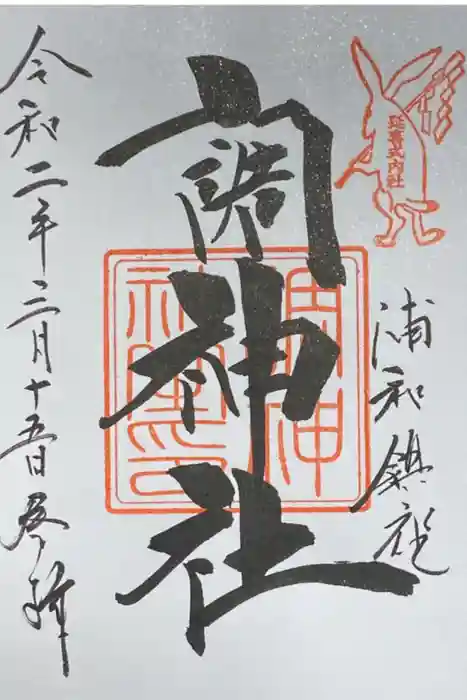 延喜式内社
浦和鎮
調神社
調神
令和二年三月十五日参拝